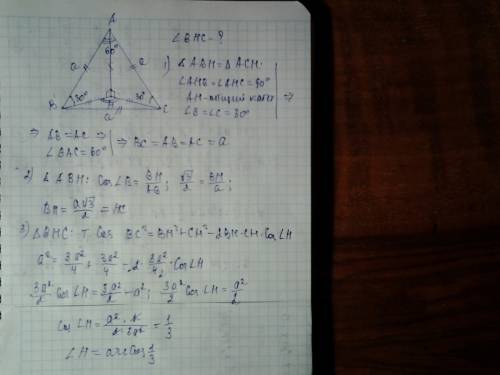 A
60°
a
a
B
30°
H
30°
C
a
∠BHC - ?
1) ΔABH = ΔACH:
∠AHB = ∠AHC = 90°
AH - общий катет
∠B = ∠C = 30°
⇒
⇒ AB = AC ⇒
∠BAC = 60°
⇒ BC = AB = AC = a
2) ΔABH: Cos∠B = BH/AB; √3/2 = BH/a;
BH = a√3/2 = HC
3) ΔBHC: т. Cos BC² = BH² + CH² - 2BH·CH·Cos∠H
a² = 3a²/4 + 3a²/4 - 2·3a²/4·Cos∠H
3a²/2 Cos∠H = 3a²/2 - a²; 3a²/2 Cos∠H = a²/2
Cos∠H = a²·2/2·3a² = 1/3
∠H = arcCos 1/3